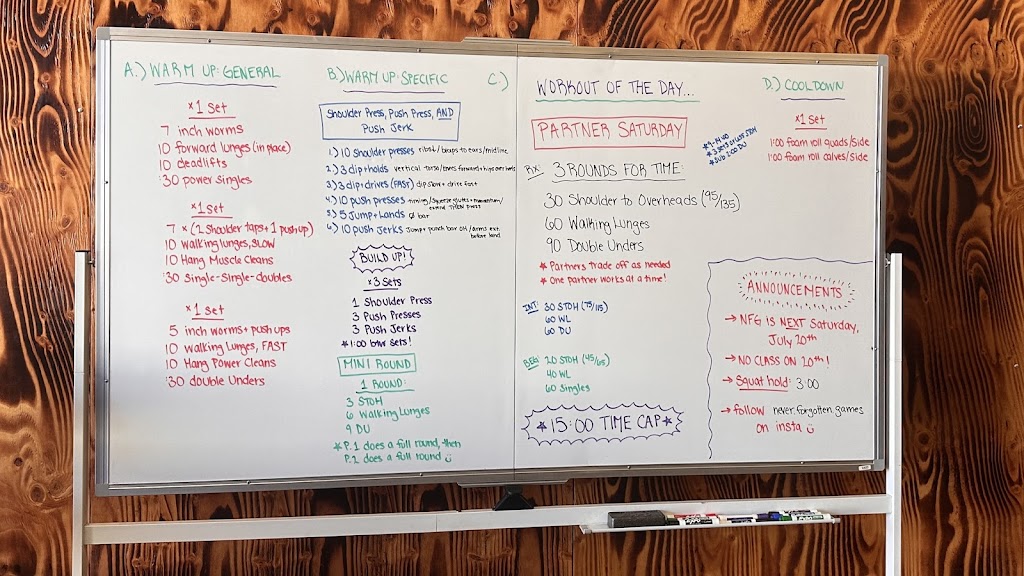 A.) WARM UP: GENERAL
x1 set
7 inch worms
10 forward lunges (in place)
10 deadlifts
:30 power singles
x1 set
7 x (2 shoulder taps + 1 push up)
10 walking lunges, SLOW
10 Hang Muscle Cleans
:30 Single-Single-doubles
x1 set
5 inch worms + push ups
10 walking Lunges, FAST
10 Hang Power Cleans
:30 double Unders
B.) WARM UP: SPECIFIC
Shoulder Press, Push Press, AND
Push Jerk
1.) 10 Shoulder presses ribs↓/biceps to ears/midline
2.) 3 dip + holds vertical torso/knees forward + hips over heels
3.) 3 dip + drives (FAST) dip slow + drive fast
4.) 10 push presses timing/squeeze glutes + momentum/
extend THEN press
5.) 5 Jump + Lands Ø bar
6.) 10 push jerks Jump + punch bar OH/arms ext.
before land
BUILD UP!
x3 Sets
1 Shoulder Press
3 Push Presses
3 Push Jerks
*1:00 btw sets!
MINI ROUND
1 ROUND:
3 STOH
6 Walking Lunges
9 DU
* P.1 does a full round, then
P.2 does a full round
C.)
WORKOUT OF THE DAY...
PARTNER SATURDAY
*3 sets
*sub 2:00 DU
RX: 3 ROUNDS FOR TIME:
30 Shoulder to Overheads (95/135)
60 Walking Lunges
90 Double Unders
* Partners trade off as needed
* One partner works at a time!
INT: 30 STOH (75/115)
60 WL
60 DU
BEG: 20 STOH (45/65)
40 WL
60 Singles
*15:00 TIME CAP*
D.) COOLDOWN
x1 set
1:00 foam roll quads/side
1:00 foam roll calves/side
ANNOUNCEMENTS
→ NFG is NEXT Saturday,
July 20th
→ NO CLASS ON 20th!
→ Squat hold: 3:00
→ follow never.forgotten games
on insta